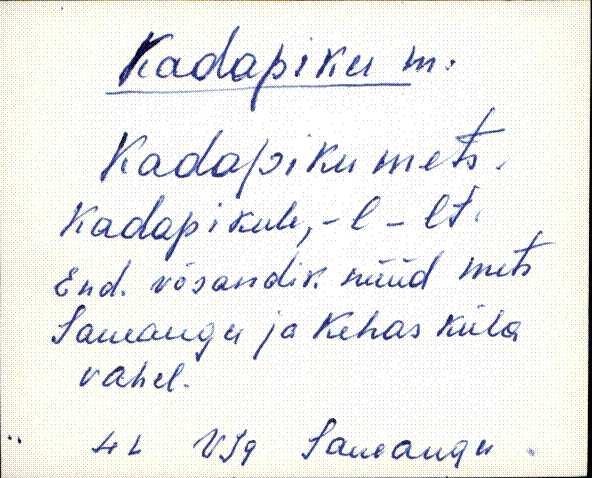 Kadapiku m.
Kadapiku mets.
Kadapikule, -l -lt.
End. võsandik nüüd mets
Sameangu ja Kehas küla
vahel.
VJg Sameangu